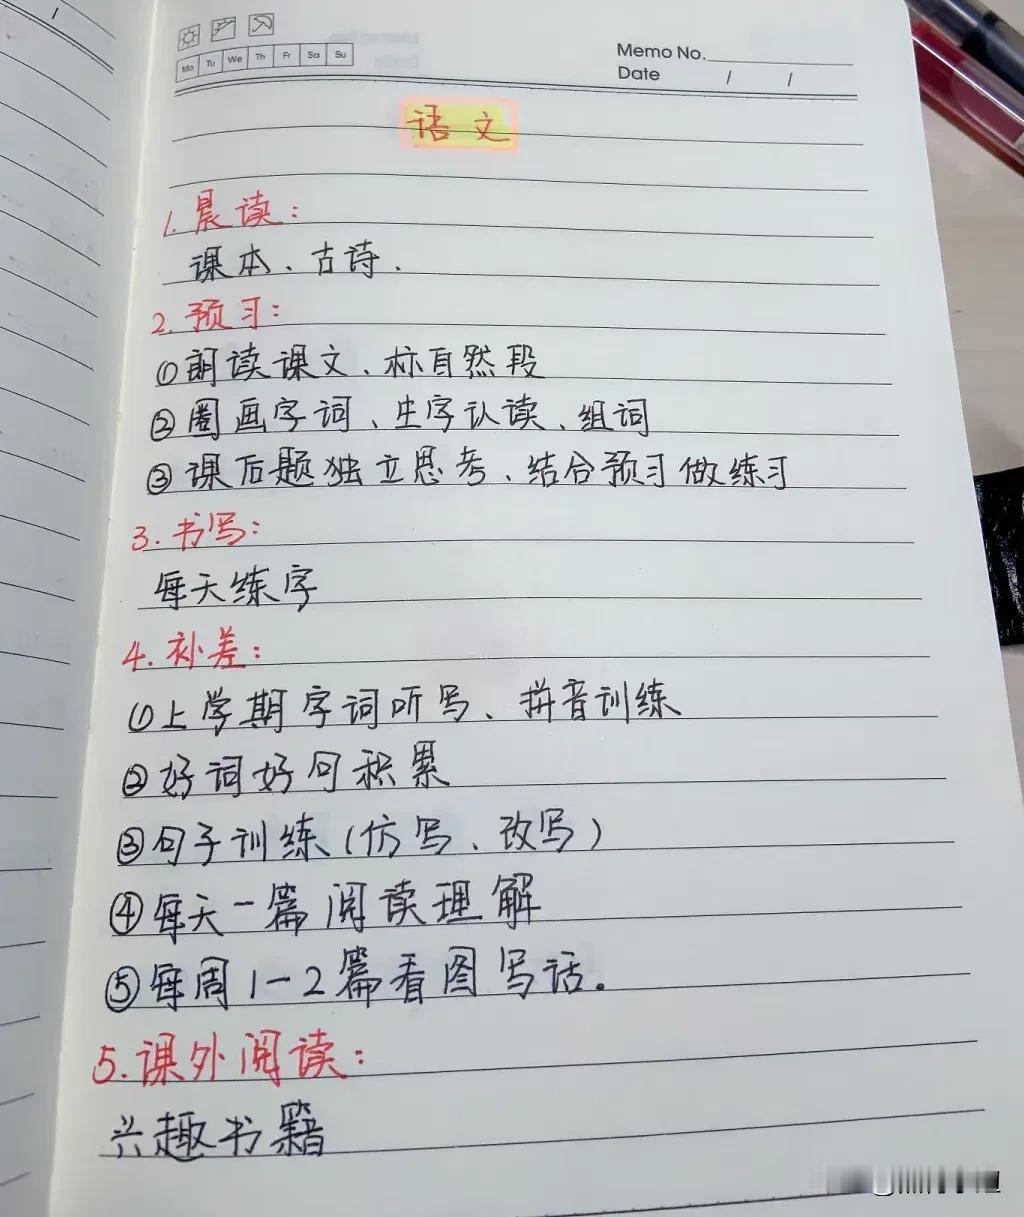 Mo Tu We Th Fr Sa Su
Memo No.
Date / /
语文
1. 晨读：
课本、古诗.
2. 预习：
①朗读课文、标自然段
②圈画字词、生字认读、组词
③课后题独立思考、结合预习做练习
3. 书写：
每天练字
4. 补差：
①上学期字词听写、拼音训练
②好词好句积累
③句子训练(仿写、改写)
④每天一篇阅读理解
⑤每周1-2篇看图写话.
5. 课外阅读：
兴趣书籍